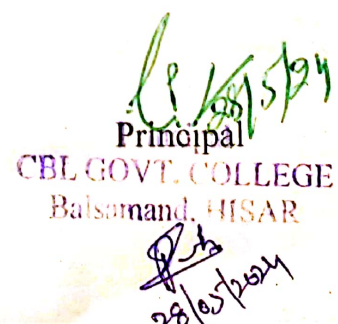 28/5/24
Principal
CBL GOVT. COLLEGE
Balsamand, HISAR
28/05/2024